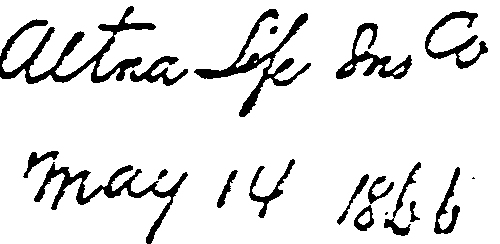 Aetna Life Ins Co
May 14 1866